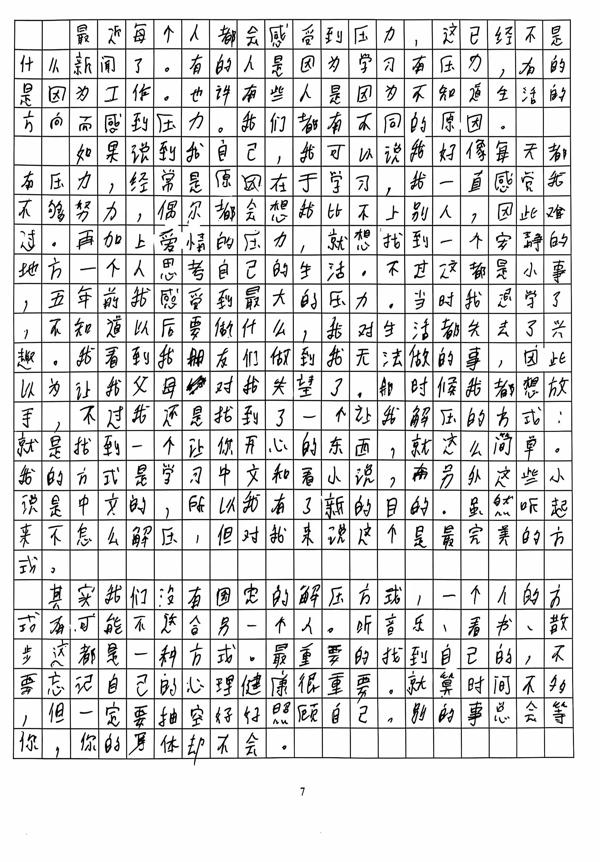 最近每个人都会感受到压力，这已经不是
什么新闻了。有的人是因为学习有压力，有的
是因为工作。也许有些人是因为不知道生活的
方向而感到压力。我们都有不同的原因。
如果说到我自己，我可以说我好像每天都
有压力，经常是原因在于学习，我一直感觉我
不够努力，偶尔都会想我比不上别人，因此难
过。再加上爱情的压力，就想找到一个安静的
地方一个人思考自己的生活。不过这都是小事
，五年前我感受到最大的压力。当时我退学了
，不知道以后要做什么，我对生活都失去了兴
趣。我看到我朋友们做到我无法做的事，因此
以为让我父母对我失望了。那时候我都想放
手，不过我还是找到了一个让我解压的方式：
就是找到一个让你开心的东西，就这么简单。
我的方式是学习中文和看小说，再另外这些小
说是中文的，所以我有了新的目的。虽然听起
来不怎么解压，但对我来说这个是最完美的方
式。
其实我们没有固定的解压方式，一个人的方
式有可能不适合另一个人。听音乐、看书、散
步这都是一种方式。最重要的找到自己的，不
要忘记自己的心理健康很重要。就算时间不多
，但一定要抽空好好照顾自己。别的事总会等
你，你的身体却不会。
7